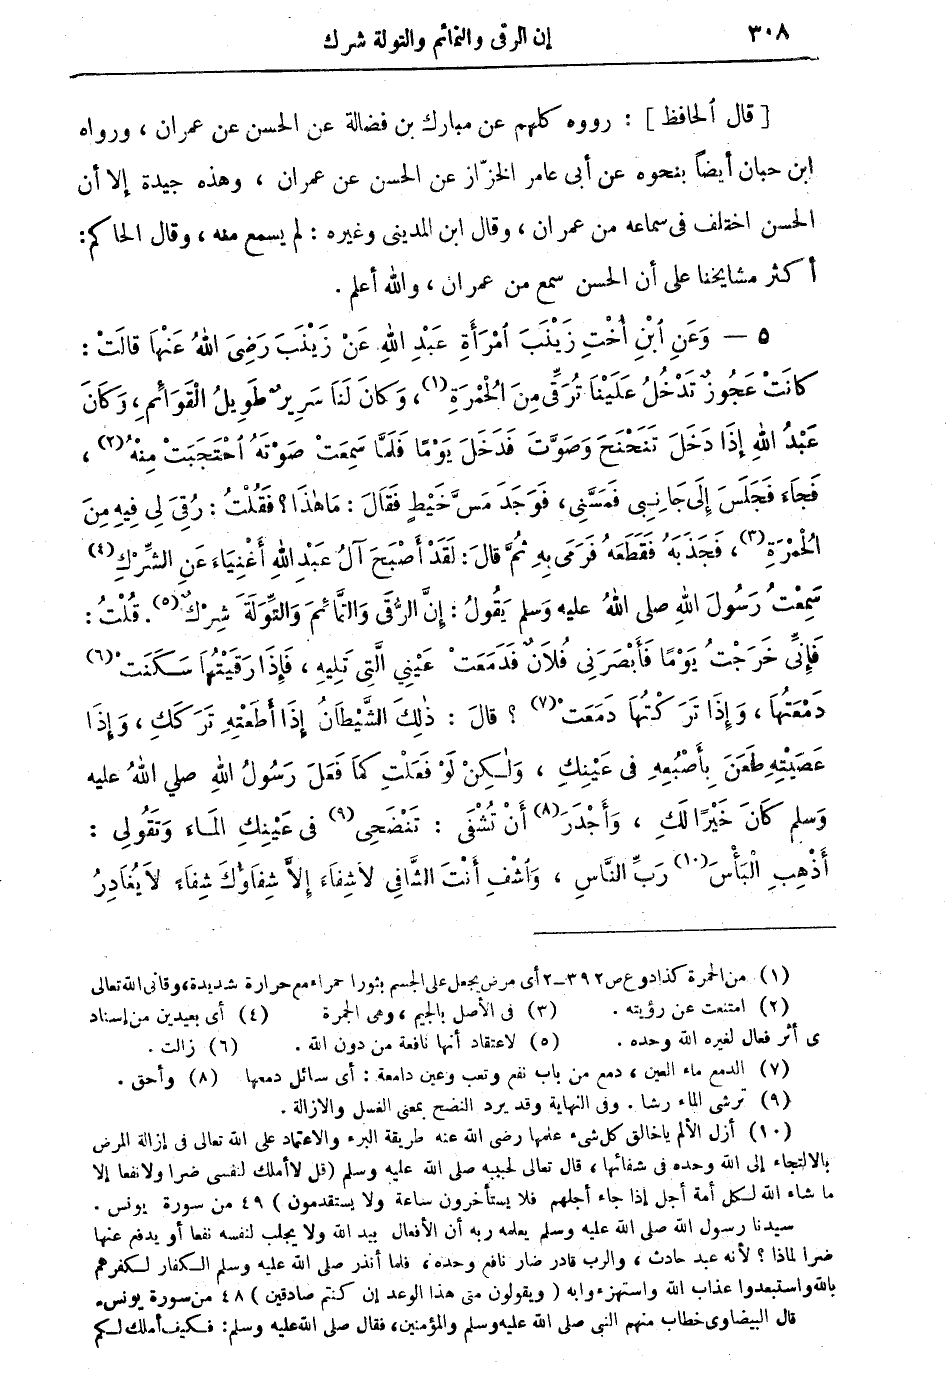 ٣٠٨
إن الرقى والتمائم والتولة شرك
[ قال ٱلحافظ ] : رووه كلهم عن مبارك بن فضالة عن الحسن عن عمران ، ورواه
ابن حبان أيضاً بنحوه عن أبى عامر الخزّاز عن الحسن عن عمران ، وهذه جيدة إلا أن
الحسن اختلف فى سماعه من عمران ، وقال ابن المدينى وغيره : لم يسمع منه ، وقال الحاكم:
أكثر مشايخنا على أن الحسن سمع من عمران ، والله أعلم .
٥ — وَعَنِ ٱبْنِ أُخْتِ زَيْنَبَ ٱمْرَأَةِ عَبْدِ اللهِ عَنْ زَيْنَبَ رَضِىَ اللهُ عَنْهَا قالَتْ :
كانَتْ عَجُوزٌ تَدْخُلُ عَلَيْنَا تُرْقِى مِنَ الْحُمْرَةِ(١)، وَكَانَ لَنَا سَرِيرٌ طَوِيلُ الْقَوَائمِ، وَكَانَ
عَبْدُ اللهِ إِذَا دَخَلَ تَنَحْنَحَ وَصَوَّتَ فَدَخَلَ يَوْمًا فَلَمَّا سَمِعَتْ صَوْتَهُ ٱحْتَجَبَتْ مِنْهُ(٢) ،
فَجاءَ فَجَلَسَ إِلَى جَانِبِى فَمَسَّنِى، فَوَجَدَ مَسَّ خَيْطٍ فَقَالَ : مَا هٰذَا؟ فَقُلْتُ : رُقِىَ لِى فِيهِ مِنَ
الْحُمْرَةِ(٣)، فَجَذَبَهُ فَقَطَعَهُ فَرَمَى بِهِ ثُمَّ قالَ: لَقَدْ أَصْبَحَ آلُ عَبْدِ اللهِ أَغْنِيَاءَ عَنِ الشِّرْكِ(٤)
سَمِعْتُ رَسُولَ اللهِ صلى اللهُ عليه وسلم يَقُولُ : إِنَّ الرُّقَى وَالتَّمائِمَ وَالتِّوَلَةَ شِرْكٌ(٥). قُلْتُ :
فَإِنِّى خَرَجْتُ يَوْمًا فَأَبْصَرَنِى فُلَانٌ فَدَمَعَتْ عَيْنِى الَّتِى تَلِيهِ ، فَإِذَا رَقَيْتُهَا سَكَنَتْ(٦)
دَمْعَتُهَا ، وَإِذَا تَرَكْتُهَا دَمَعَتْ(٧) ؟ قالَ : ذٰلِكَ الشَّيْطَانُ إِذَا أَطَعْتِهِ تَرَكَكِ ، وَإِذَا
عَصَيْتِهِ طَعَنَ بِأُصْبُعِهِ فى عَيْنِكِ ، وَلٰكِنْ لَوْ فَعَلْتِ كَمَا فَعَلَ رَسُولُ اللهِ صلى اللهُ عليه
وَسلم كَانَ خَيْرًا لَكِ ، وَأَجْدَرَ(٨) أَنْ تُشْفَى : تَنْضَحِى(٩) فى عَيْنِكِ المَاءَ وَتَقُولِى :
أَذْهِبِ الْبَأْسَ(١٠) رَبِّ النَّاسِ ، وَٱشْفِ أَنْتَ الشَّافِى لاَ شِفَاءَ إِلاَّ شِفَاؤُكَ شِفَاءً لاَ يُغَادِرُ
(١) من الحمرة كذا د وع ص ٣٩٢ — ٢ أى مرض يجعل على الجسم بثورا حمراء مع حرارة شديدة، وقانى الله تعالى
(٢) امتنعت عن رؤيته . (٣) فى الأصل بالجيم ، وهى الجمرة (٤) أى بعيدين من إسناد
ى أثر فعال لغيره الله وحده . (٥) لاعتقاد أنها نافعة من دون الله . (٦) زالت .
(٧) الدمع ماء العين ، دمع من باب نفع وتعب وعين دامعة : أى سائل دمعها (٨) وأحق .
(٩) ترشى الماء رشا . وفى النهاية وقد يرد النضح بمعنى الغسل والازالة .
(١٠) أزل الألم ياخالق كل شىء علمها رضى الله عنه طريقة البرء والاعتماد على الله تعالى فى إزالة المرض
بالالتجاء إلى الله وحده فى شفائها ، قال تعالى لحبيبه صلى الله عليه وسلم (قل لا أملك لنفسى ضرا ولا نفعا إلا
ما شاء الله لكل أمة أجل إذا جاء أجلهم فلا يستأخرون ساعة ولا يستقدمون ) ٤٩ من سورة يونس .
سيدنا رسول الله صلى الله عليه وسلم يعلمه ربه أن الأفعال بيد الله ولا يجلب لنفسه نفعا أو يدفع عنها
ضرا لماذا ؟ لأنه عبد حادث ، والرب قادر ضار نافع وحده، فلما أنذر صلى الله عليه وسلم الكفار لكفرهم
بالله واستبعدوا عذاب الله واستهزءوا به ( ويقولون متى هذا الوعد إن كنتم صادقين ) ٤٨ من سورة يونس،
قال البيضاوى خطاب منهم النبى صلى الله عليه وسلم والمؤمنين، فقال صلى الله عليه وسلم: فكيف أملك لكم